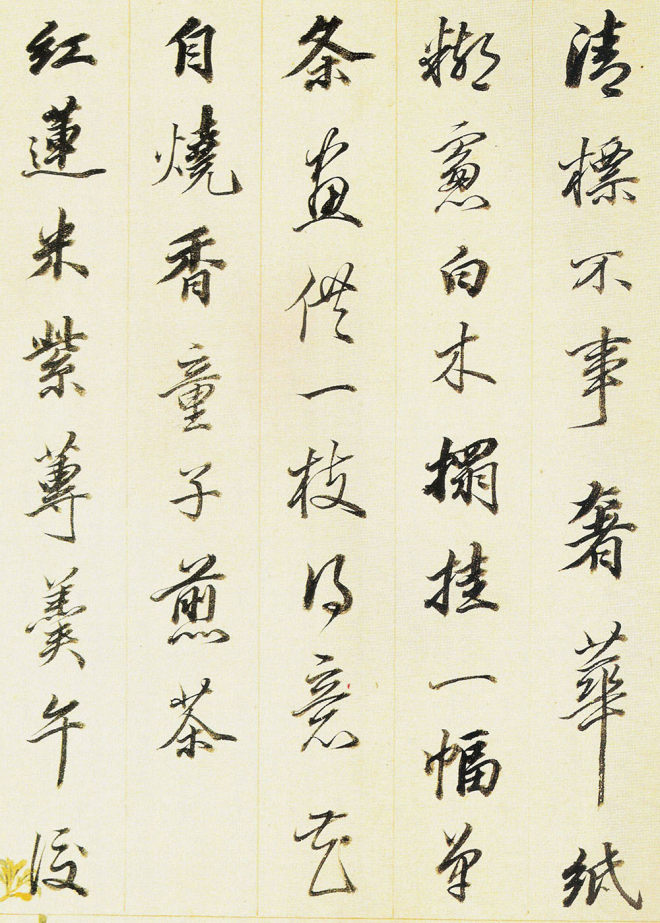 清標不事奢華紙
糊窻白木搨挂一幅單
条畫供一枝得意花
自燒香童子煎茶
紅蓮米紫蓴羹午後